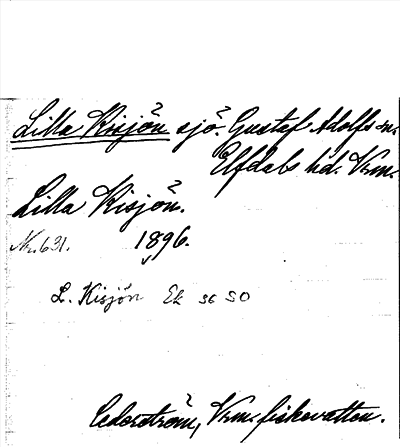 Lilla Kisjön sjö. Gustaf Adolfs sn.
Elfdals hd. Vrm.
Lilla Kisjön.
No. 631. 1896.
L. Kisjön Ek 56 SO
Cederström, Vrm. fiskevatten.